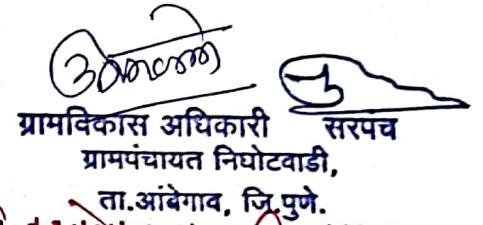 ग्रामविकास अधिकारी सरपच
ग्रामपंचायत निघोटवाडी,
ता.आंबेगाव, जि.पुणे.